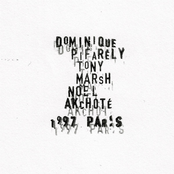 DOMINIQUE
PIFARELY
TONY
MARSH
NOEL
AKCHOTE
1997 PARIS